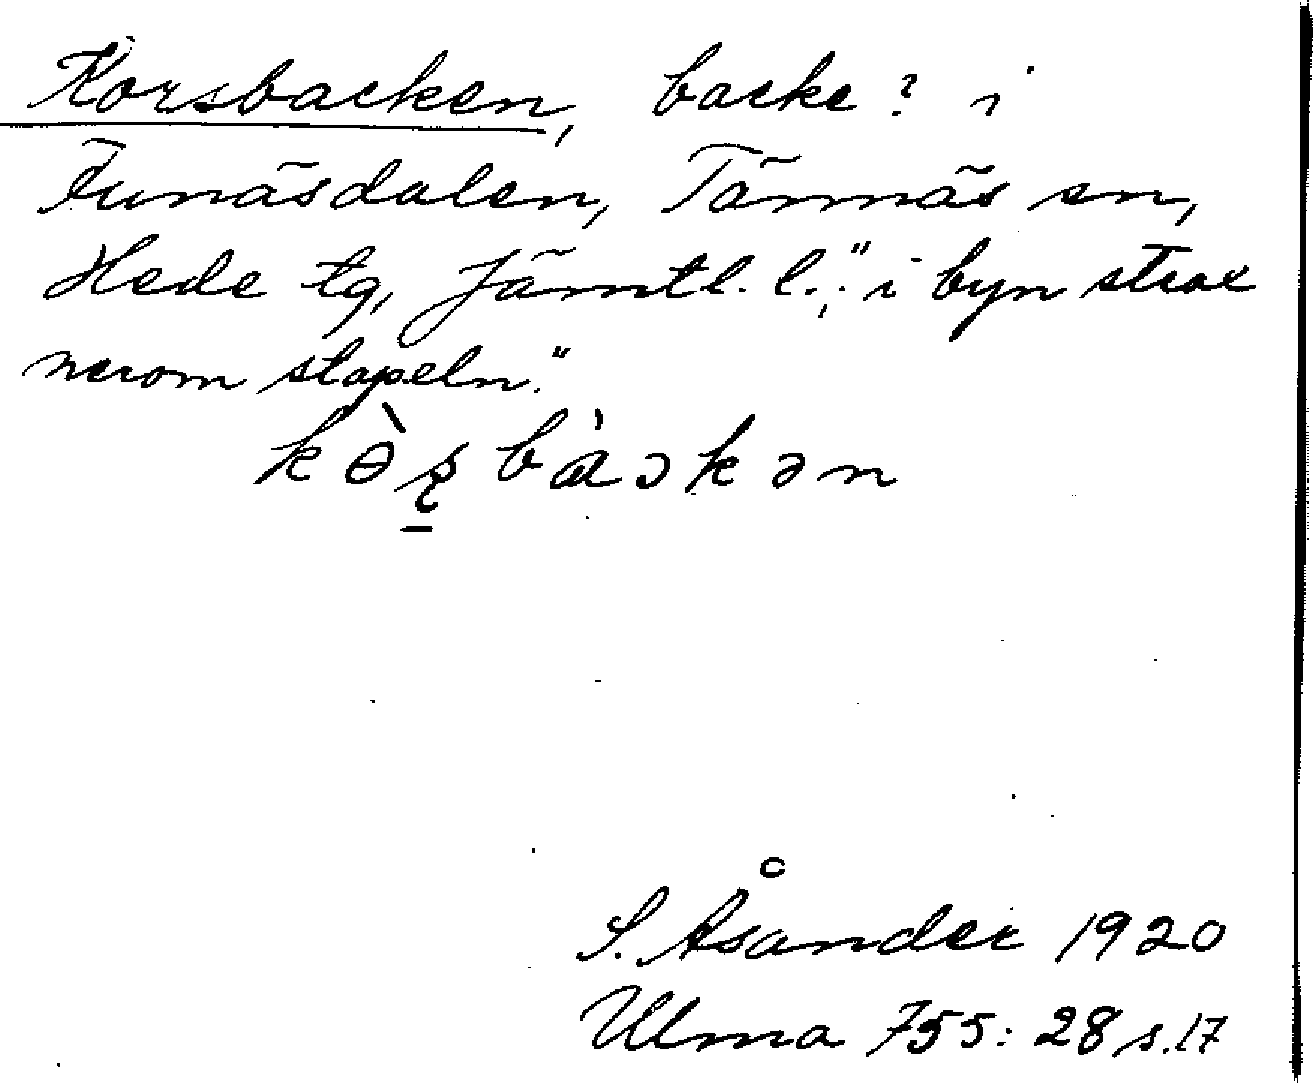 Korsbacken, backe? i
Funäsdalen, Tännäs sn,
Hede tg, Jämtl. l.; "i byn strax
nerom stapeln."
kɵ̀ʂbàɔkən
S. Åsander 1920
Ulma 755: 28 s. 17